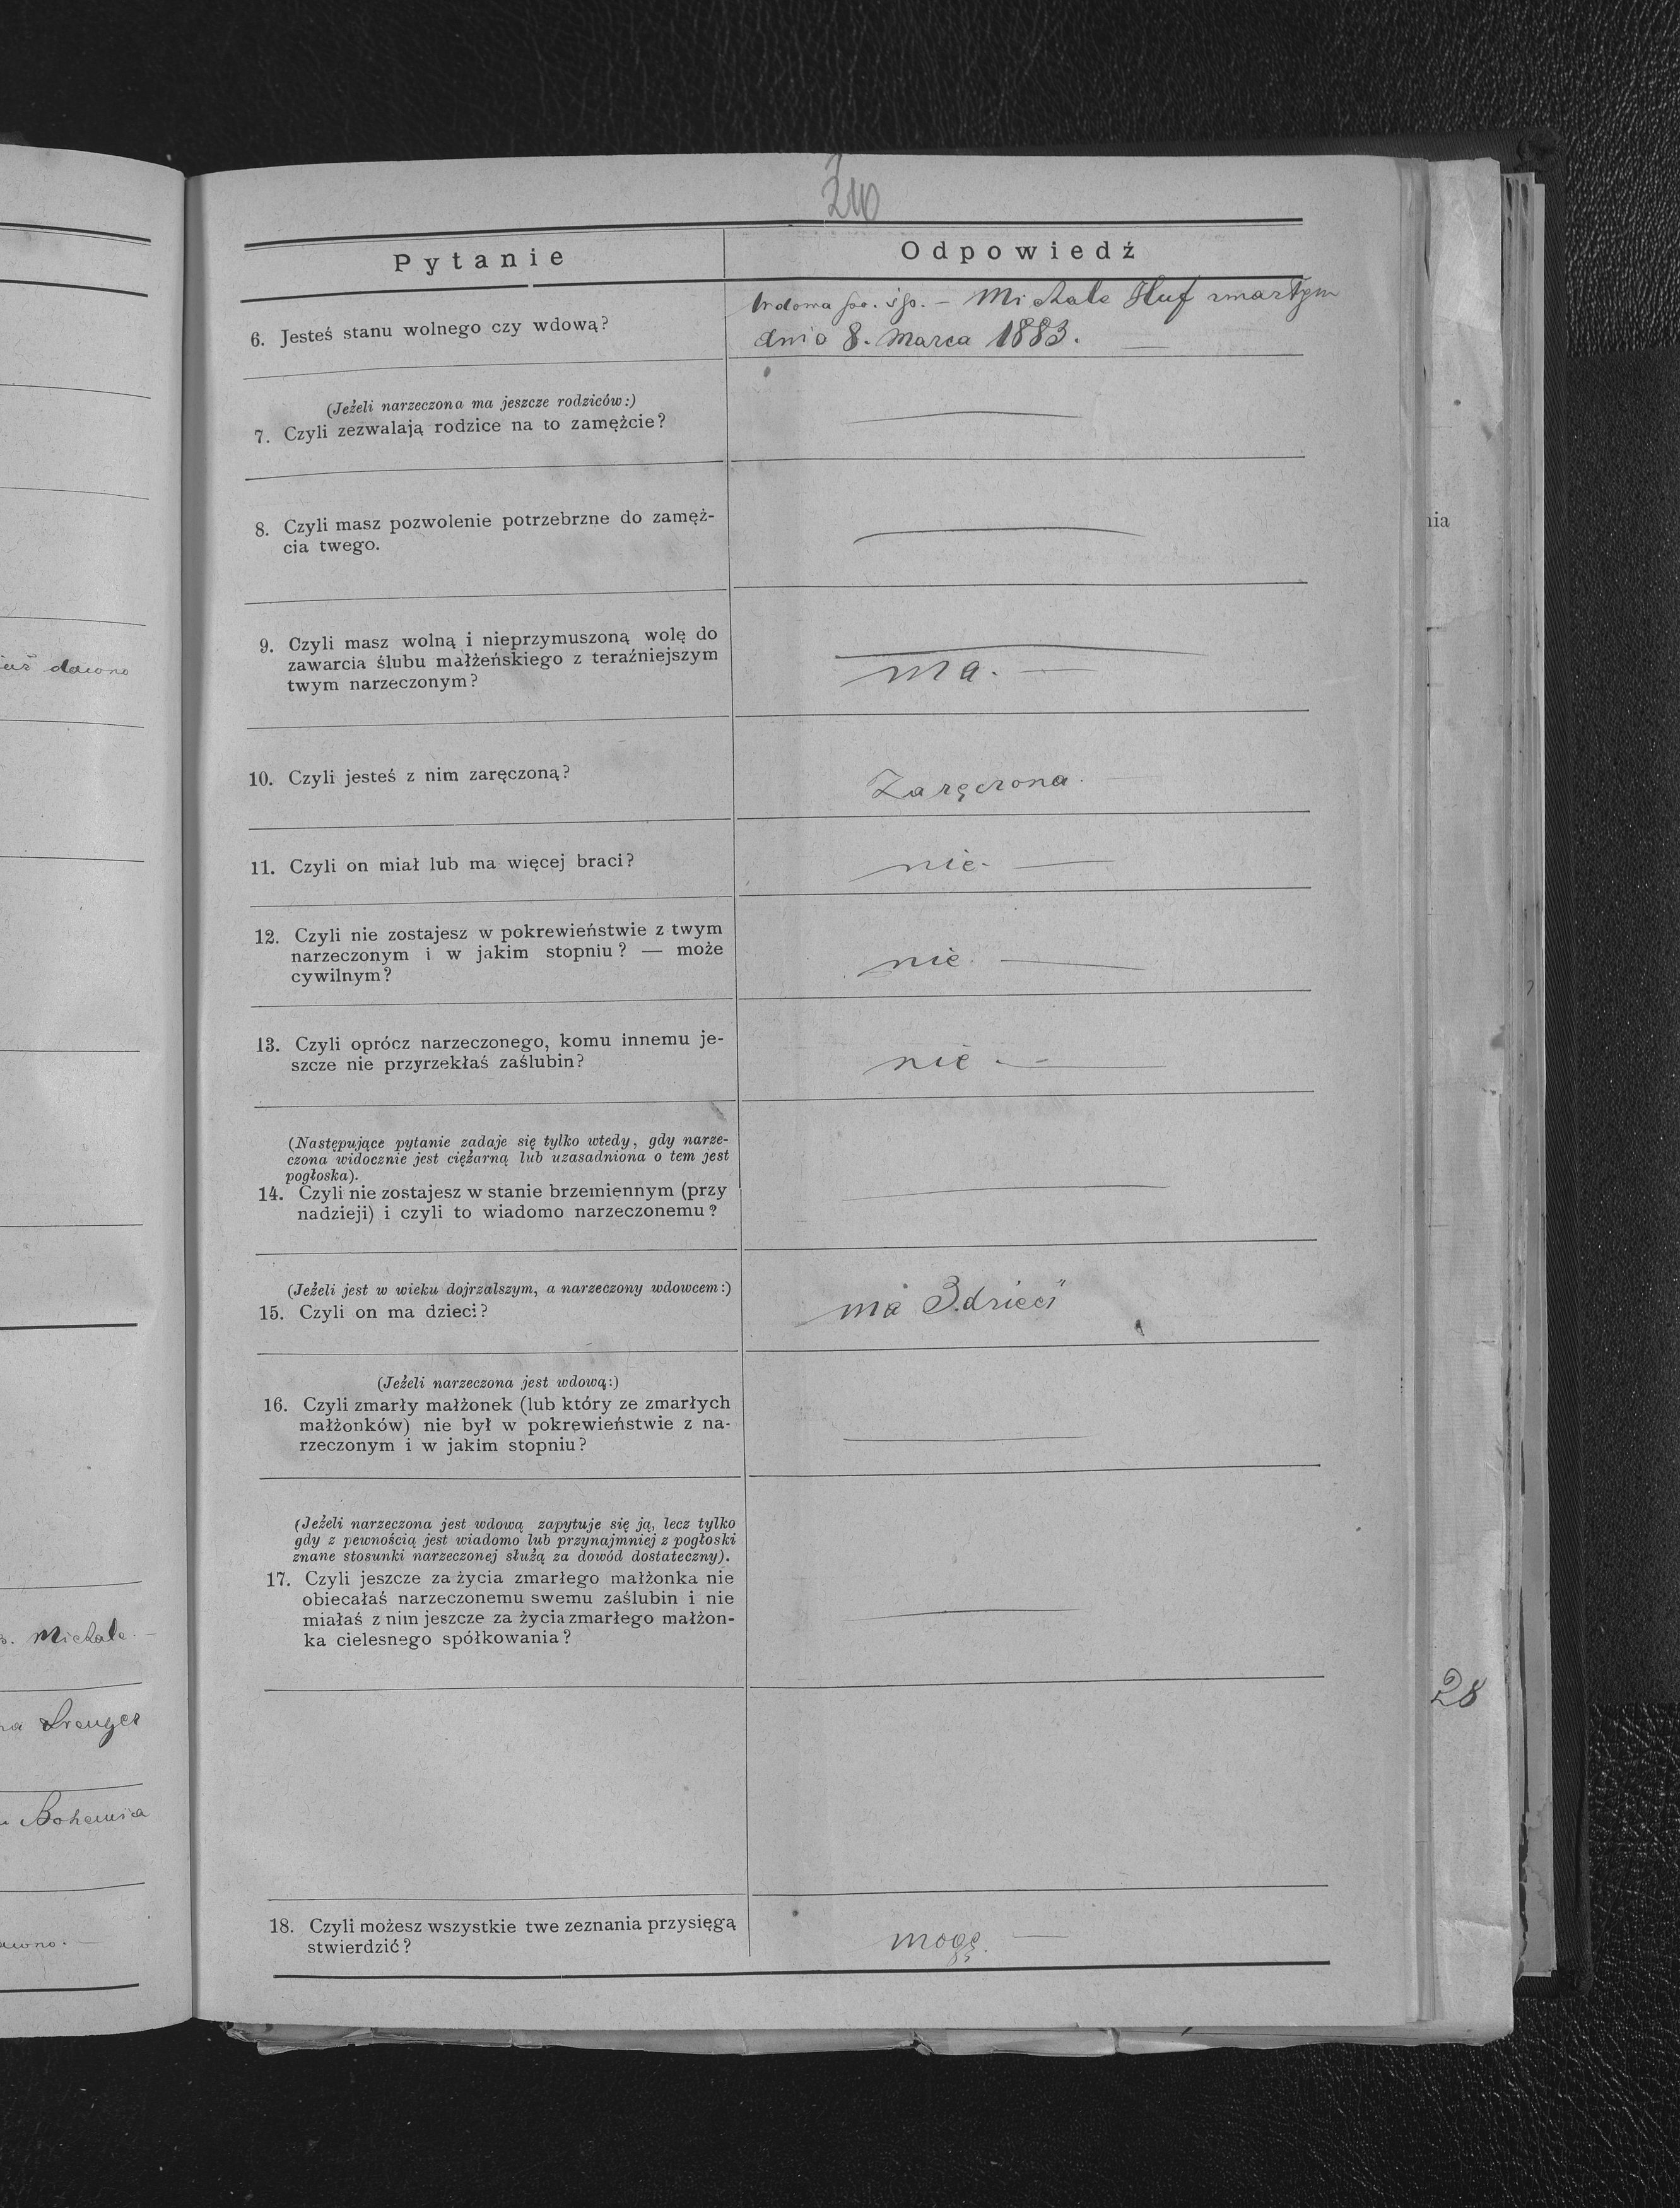 210
Pytanie
Odpowiedź
6. Jesteś stanu wolnego czy wdową?
Wdowa po. śp. – Michale Huf zmarłym
dnia 8. Marca 1883. —
(Jeżeli narzeczona ma jeszcze rodziców:)
7. Czyli zezwalają rodzice na to zamężcie?
8. Czyli masz pozwolenie potrzebrzne do zamęż-
cia twego.
9. Czyli masz wolną i nieprzymuszoną wolę do
zawarcia ślubu małżeńskiego z teraźniejszym
twym narzeczonym?
ma. —
10. Czyli jesteś z nim zaręczoną?
Zaręczona. —
11. Czyli on miał lub ma więcej braci?
nie. —
12. Czyli nie zostajesz w pokrewieństwie z twym
narzeczonym i w jakim stopniu? — może
cywilnym?
nie. —
13. Czyli oprócz narzeczonego, komu innemu je-
szcze nie przyrzekłaś zaślubin?
nie. —
(Następujące pytanie zadaje się tylko wtedy, gdy narze-
czona widocznie jest ciężarną lub uzasadniona o tem jest
pogłoska).
14. Czyli nie zostajesz w stanie brzemiennym (przy
nadzieji) i czyli to wiadomo narzeczonemu?
(Jeżeli jest w wieku dojrzalszym, a narzeczony wdowcem:)
15. Czyli on ma dzieci?
ma 3. dzieci
(Jeżeli narzeczona jest wdową:)
16. Czyli zmarły małżonek (lub który ze zmarłych
małżonków) nie był w pokrewieństwie z na-
rzeczonym i w jakim stopniu?
(Jeżeli narzeczona jest wdową zapytuje się ją, lecz tylko
gdy z pewnością jest wiadomo lub przynajmniej z pogłoski
znane stosunki narzeczonej służą za dowód dostateczny).
17. Czyli jeszcze za życia zmarłego małżonka nie
obiecałaś narzeczonemu swemu zaślubin i nie
miałaś z nim jeszcze za życia zmarłego małżon-
ka cielesnego spółkowania?
18. Czyli możesz wszystkie twe zeznania przysięgą
stwierdzić?
mogę. —
dawno
Michale
Bohemia
nia
28